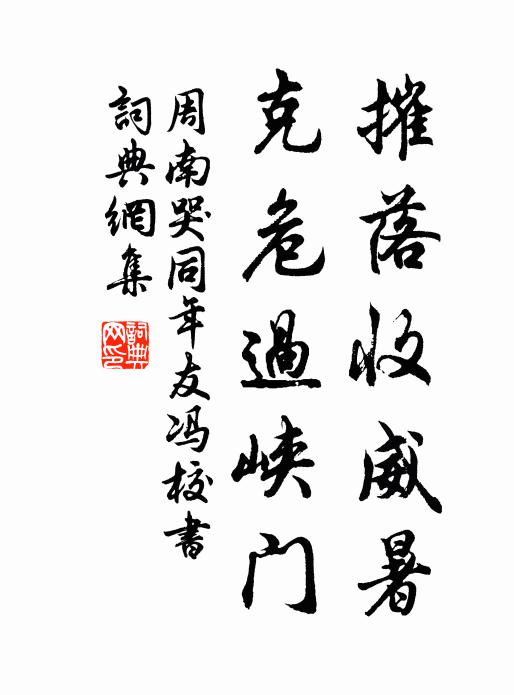 摧落收威暑
克危過峡门
周南哭同年友冯校書
詞典網集
詞典网印